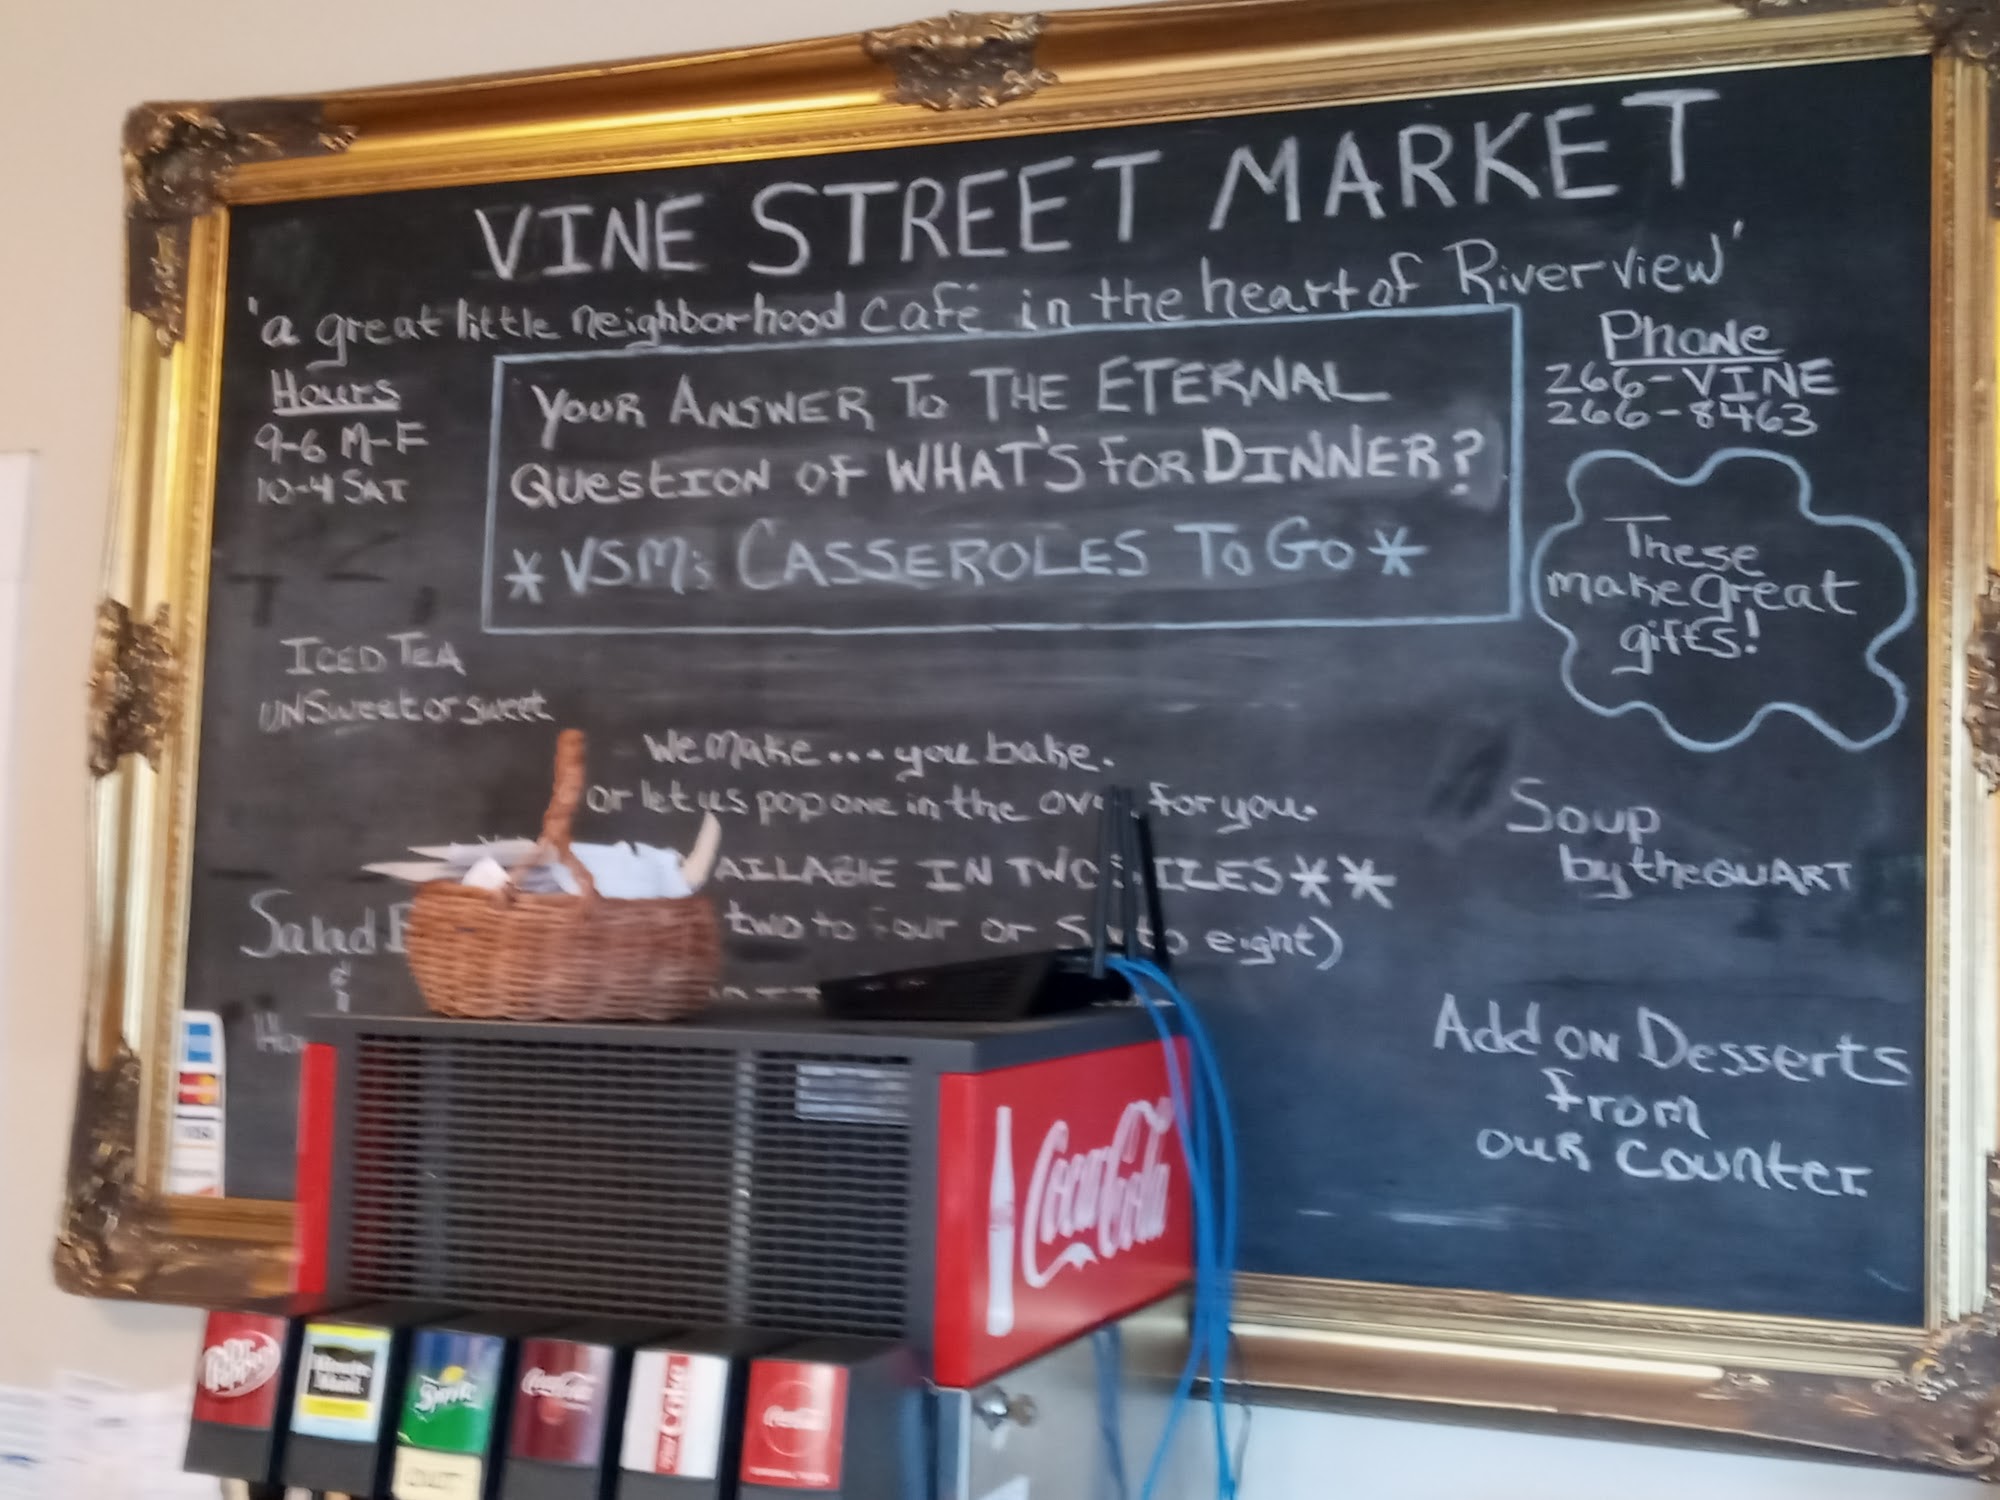 VINE STREET MARKET
'a great little neighborhood café in the heart of Riverview'
Hours
9-6 M-F
10-4 SAT
YOUR ANSWER TO THE ETERNAL
QUESTION OF WHAT'S FOR DINNER?
* VSM's CASSEROLES TO GO *
Phone
266-VINE
266-8463
These
make great
gifts!
ICED TEA
UNSweet or sweet
We make... you bake.
or let us pop one in the for you.
AILABLE IN TWO **
two to Four or eight)
Salad
&
Soup
by the QUART
Add on Desserts
from
our counter.
Coca-Cola
VISA
Dr Pepper
Minute Maid
Sprite
Coca-Cola
Diet Coke
Coca-Cola
OUT